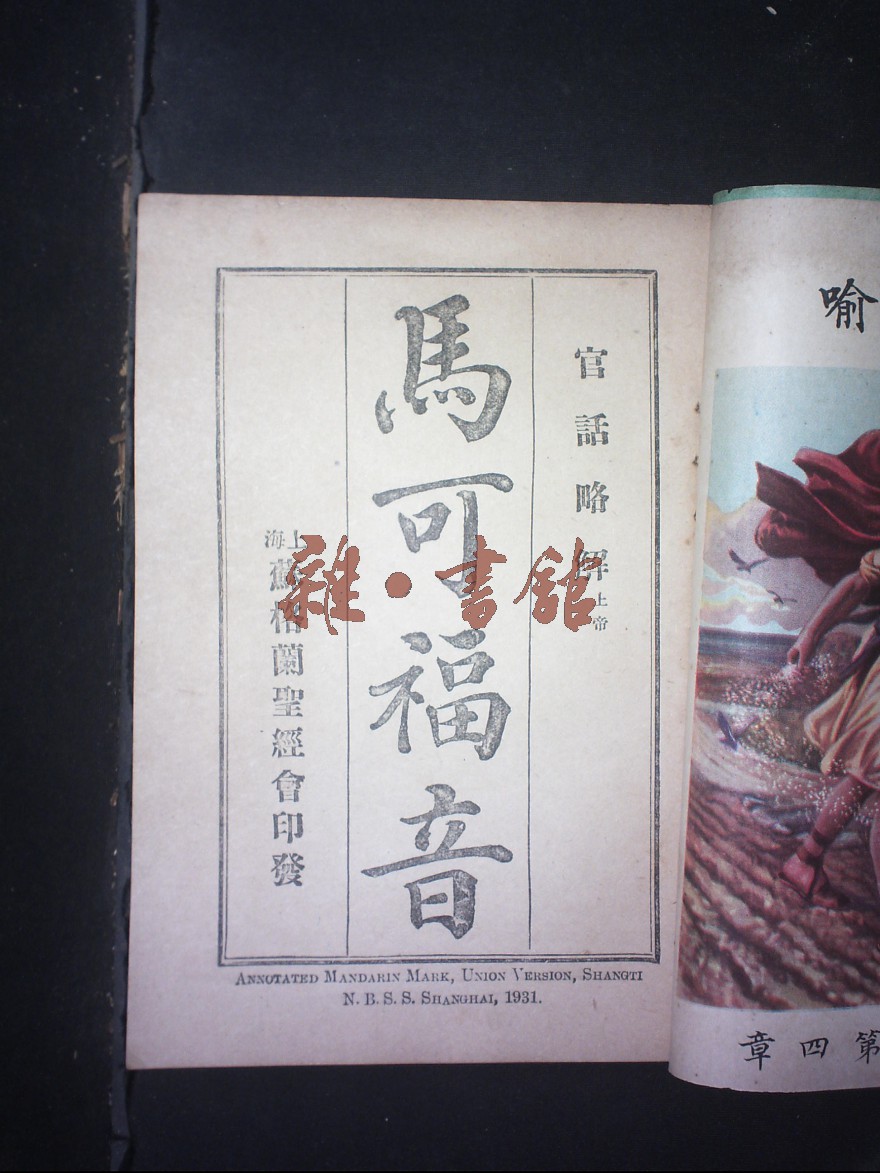 官話略解
上帝
馬可福音
上海
蘇格蘭聖經會印發
ANNOTATED MANDARIN MARK, UNION VERSION, SHANGTI
N. B. S. S. SHANGHAI, 1931.
雜·書館
喻
第四章